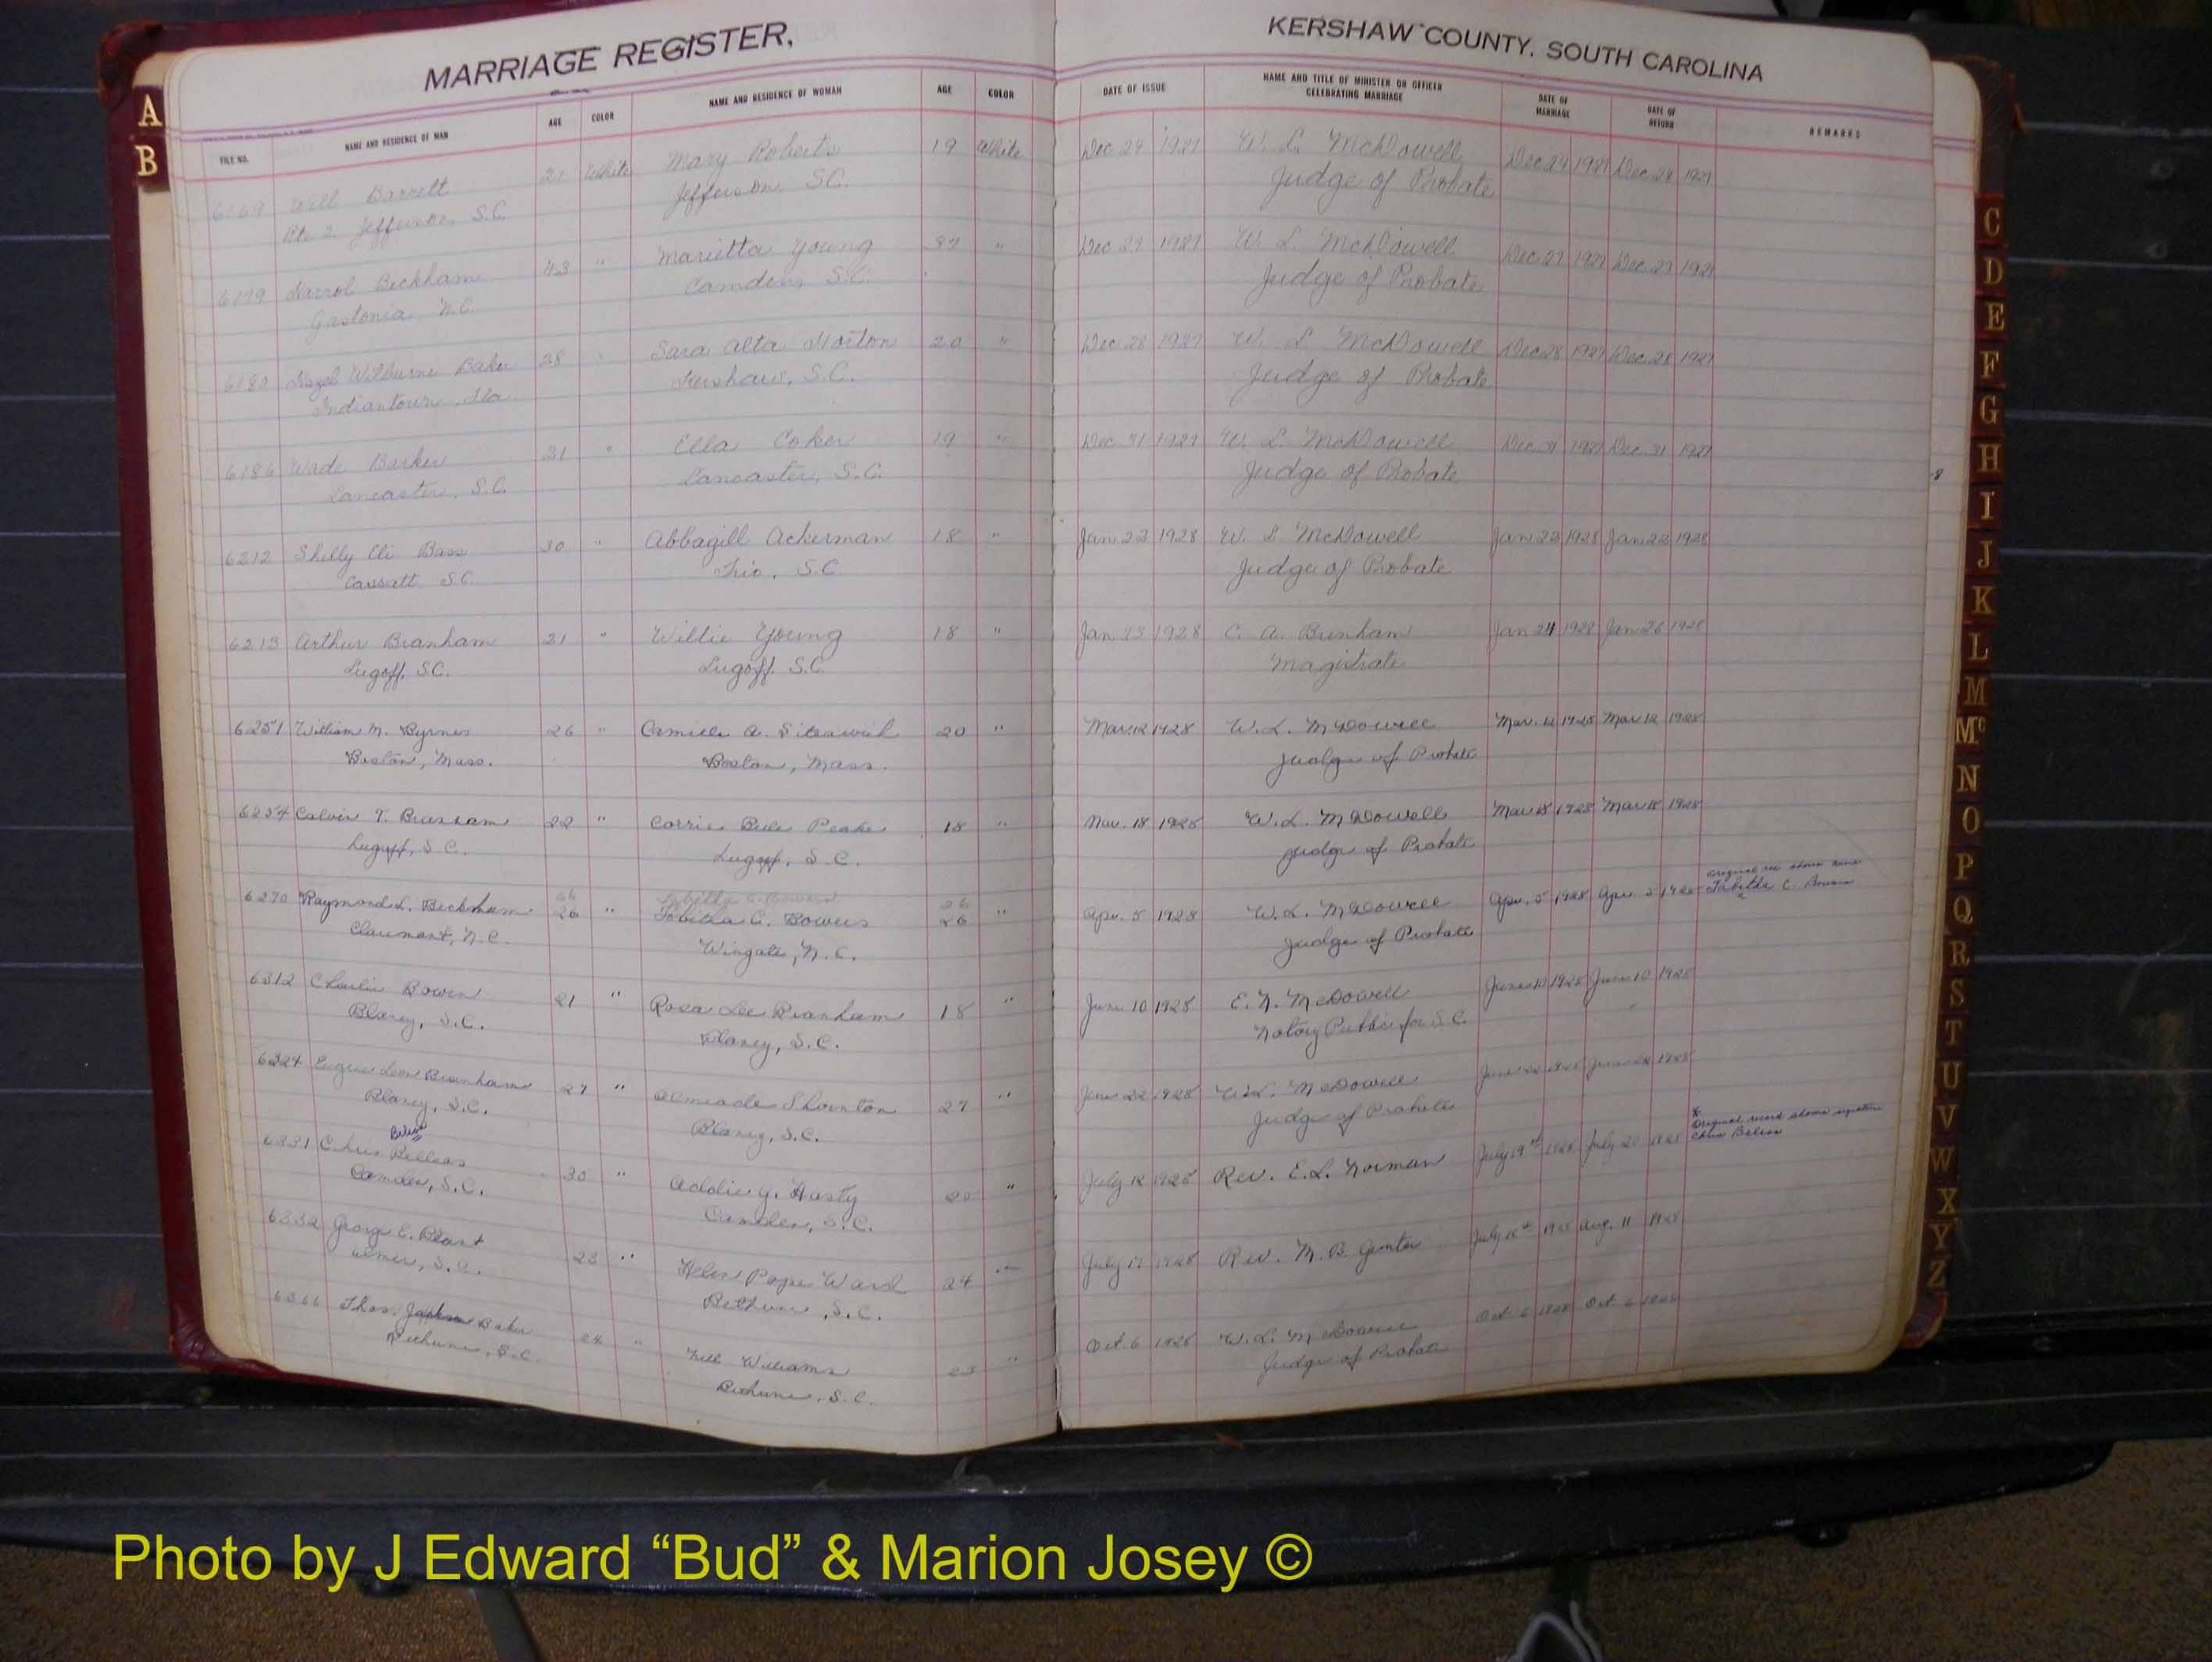 MARRIAGE REGISTER,
KERSHAW COUNTY, SOUTH CAROLINA
A
B
FILE NO.
NAME AND RESIDENCE OF MAN
AGE
COLOR
NAME AND RESIDENCE OF WOMAN
AGE
COLOR
DATE OF ISSUE
NAME AND TITLE OF MINISTER OR OFFICER
CELEBRATING MARRIAGE
DATE OF
MARRIAGE
DATE OF
RETURN
REMARKS
Will Barrett 21 White Mary Roberts 19 White Dec 24 1927 W. L. McDowell Dec 24 1927 Dec 24 1927
Rte 2 Jefferson, S.C. Jefferson S.C. Judge of Probate
6179 Beckham 43 " Marietta Young " Dec 27 1927 W. L. McDowell Dec 27 1927 Dec 27 1927
Gastonia N.C. Camden, S.C. Judge of Probate
6180 Wilburne Baker 28 " Sara Alta Horton 20 " Dec 28 1927 W. L. McDowell Dec 28 1927 Dec 28 1927
Indiantown, Fla. Kershaw, S.C. Judge of Probate
6186 Wade Barker 21 " Ella Coker 19 " Dec 31 1927 W. L. McDowell Dec 31 1927 Dec 31 1927
Lancaster, S.C. Lancaster, S.C. Judge of Probate
6212 Shelly Eli Bass 30 " Abbagill Ackerman 18 " Jan 22 1928 W. L. McDowell Jan 22 1928 Jan 22 1928
Cassatt S.C. Trio, S.C. Judge of Probate
6213 Arthur Branham 21 " Willie Young 18 " Jan 23 1928 C. A. Magistrate Jan 24 1928 Jan 26 1928
Lugoff, S.C. Lugoff, S.C.
6251 William M. Byrnes 26 " Camille A. 20 " Mar. 12 1928 W. L. McDowell Mar. 12 1928 Mar 12 1928
Boston, Mass. Boston, Mass. Judge of Probate
6254 Calvin T. Branham 22 " Corrie Belle Peake 18 " Mar. 18 1928 W. L. McDowell Mar 18 1928 Mar 18 1928
Lugoff, S.C. Lugoff, S.C. Judge of Probate
6270 Raymond L. Beckham 26 " Tabitha C. Bowers 26 " Apr. 5 1928 W. L. McDowell Apr. 5 1928 Apr. 5 1928
Claremont, N.C. Wingate, N.C. Judge of Probate
Tabitha C.
6312 Charlie Bowen 21 " Rosa Lee Branham 18 " June 10 1928 E. N. McDowell June 10 1928 June 10 1928
Blaney, S.C. Blaney, S.C. Notary Public for S.C.
6324 Leon Branham 27 " Thornton 27 " June 22 1928 W. L. McDowell June 22 1928 June 22 1928
Blaney, S.C. Blaney, S.C. Judge of Probate
6331 Chris 30 " Addie G. Hasty 20 " July 12 1928 Rev. E. L. Norman July 19th 1928 July 20 1928
Camden, S.C. Camden, S.C.
Original record shows signature
Chris
6332 George E. 23 " Helen Pope Ward 24 " July 17 1928 Rev. M. B. July 18th 1928 Aug. 11 1928
S.C. Bethune, S.C.
6366 Thos. Jackson Baker 24 " Williams 23 " Oct. 6 1928 W. L. McDowell Oct. 6 1928 Oct. 6 1928
Bethune, S.C. Bethune, S.C. Judge of Probate
C
D
E
F
G
H
I
J
K
L
M
Mc
N
O
P
Q
R
S
T
U
V
W
X
Y
Z
Photo by J Edward “Bud” & Marion Josey ©